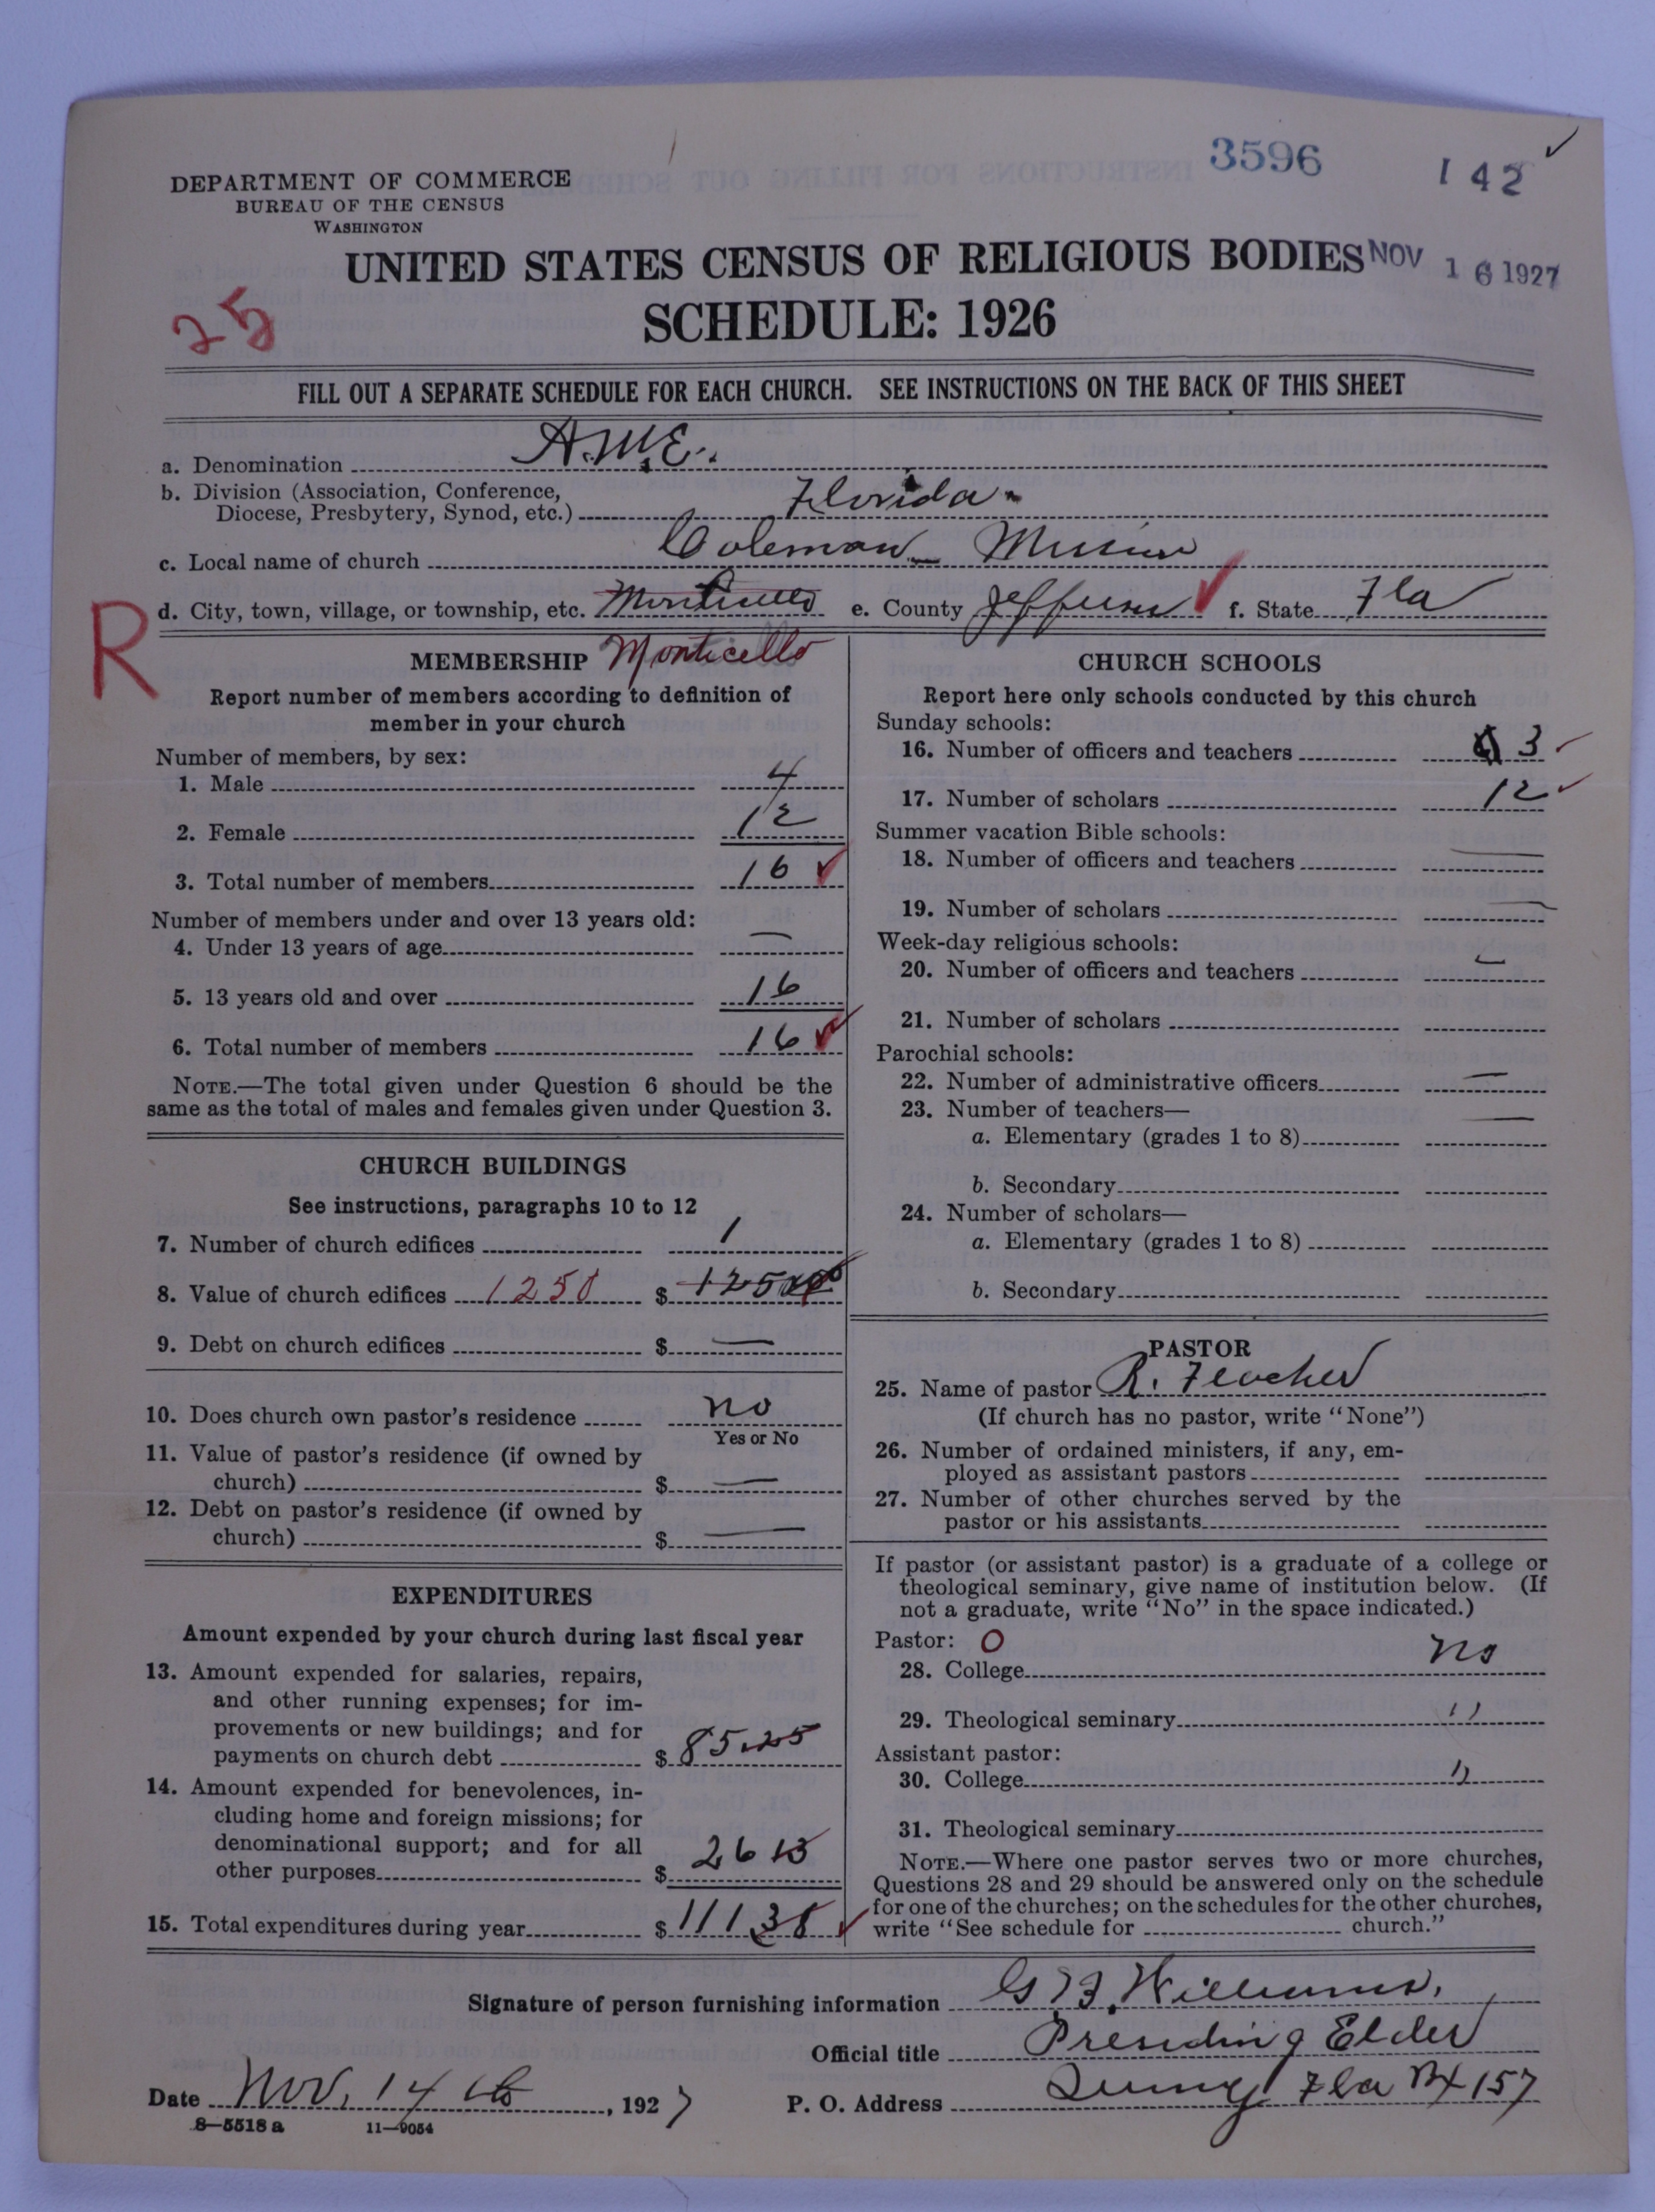 3596
142
DEPARTMENT OF COMMERCE
BUREAU OF THE CENSUS
WASHINGTON
UNITED STATES CENSUS OF RELIGIOUS BODIES
NOV 16 1927
SCHEDULE: 1926
25
FILL OUT A SEPARATE SCHEDULE FOR EACH CHURCH. SEE INSTRUCTIONS ON THE BACK OF THIS SHEET
a. Denomination A.M.E.
b. Division (Association, Conference,
Diocese, Presbytery, Synod, etc.) Florida
c. Local name of church Coleman Mission
d. City, town, village, or township, etc. Monticello e. County Jefferson f. State Fla
R
MEMBERSHIP Monticello
Report number of members according to definition of
member in your church
Number of members, by sex:
1. Male 4
2. Female 12
3. Total number of members 16
Number of members under and over 13 years old:
4. Under 13 years of age —
5. 13 years old and over 16
6. Total number of members 16
NOTE.—The total given under Question 6 should be the
same as the total of males and females given under Question 3.
CHURCH BUILDINGS
See instructions, paragraphs 10 to 12
7. Number of church edifices 1
8. Value of church edifices 1250 $
9. Debt on church edifices $ —
10. Does church own pastor's residence no
Yes or No
11. Value of pastor's residence (if owned by
church) $ —
12. Debt on pastor's residence (if owned by
church) $ —
EXPENDITURES
Amount expended by your church during last fiscal year
13. Amount expended for salaries, repairs,
and other running expenses; for im-
provements or new buildings; and for
payments on church debt $ 85.25
14. Amount expended for benevolences, in-
cluding home and foreign missions; for
denominational support; and for all
other purposes $ 26 13
15. Total expenditures during year $ 111.38
CHURCH SCHOOLS
Report here only schools conducted by this church
Sunday schools:
16. Number of officers and teachers 3
17. Number of scholars 12
Summer vacation Bible schools:
18. Number of officers and teachers —
19. Number of scholars —
Week-day religious schools:
20. Number of officers and teachers —
21. Number of scholars
Parochial schools:
22. Number of administrative officers —
23. Number of teachers— —
a. Elementary (grades 1 to 8)
b. Secondary
24. Number of scholars—
a. Elementary (grades 1 to 8)
b. Secondary
PASTOR
25. Name of pastor R.
(If church has no pastor, write "None")
26. Number of ordained ministers, if any, em-
ployed as assistant pastors
27. Number of other churches served by the
pastor or his assistants
If pastor (or assistant pastor) is a graduate of a college or
theological seminary, give name of institution below. (If
not a graduate, write "No" in the space indicated.)
Pastor: O
28. College no
29. Theological seminary "
Assistant pastor:
30. College "
31. Theological seminary
NOTE.—Where one pastor serves two or more churches,
Questions 28 and 29 should be answered only on the schedule
for one of the churches; on the schedules for the other churches,
write "See schedule for church."
Signature of person furnishing information Williams.
Official title Presiding Elder
Date Nov. 14 th, 1927
P. O. Address Quincy Fla Bx 157
8—5518 a 11—9054